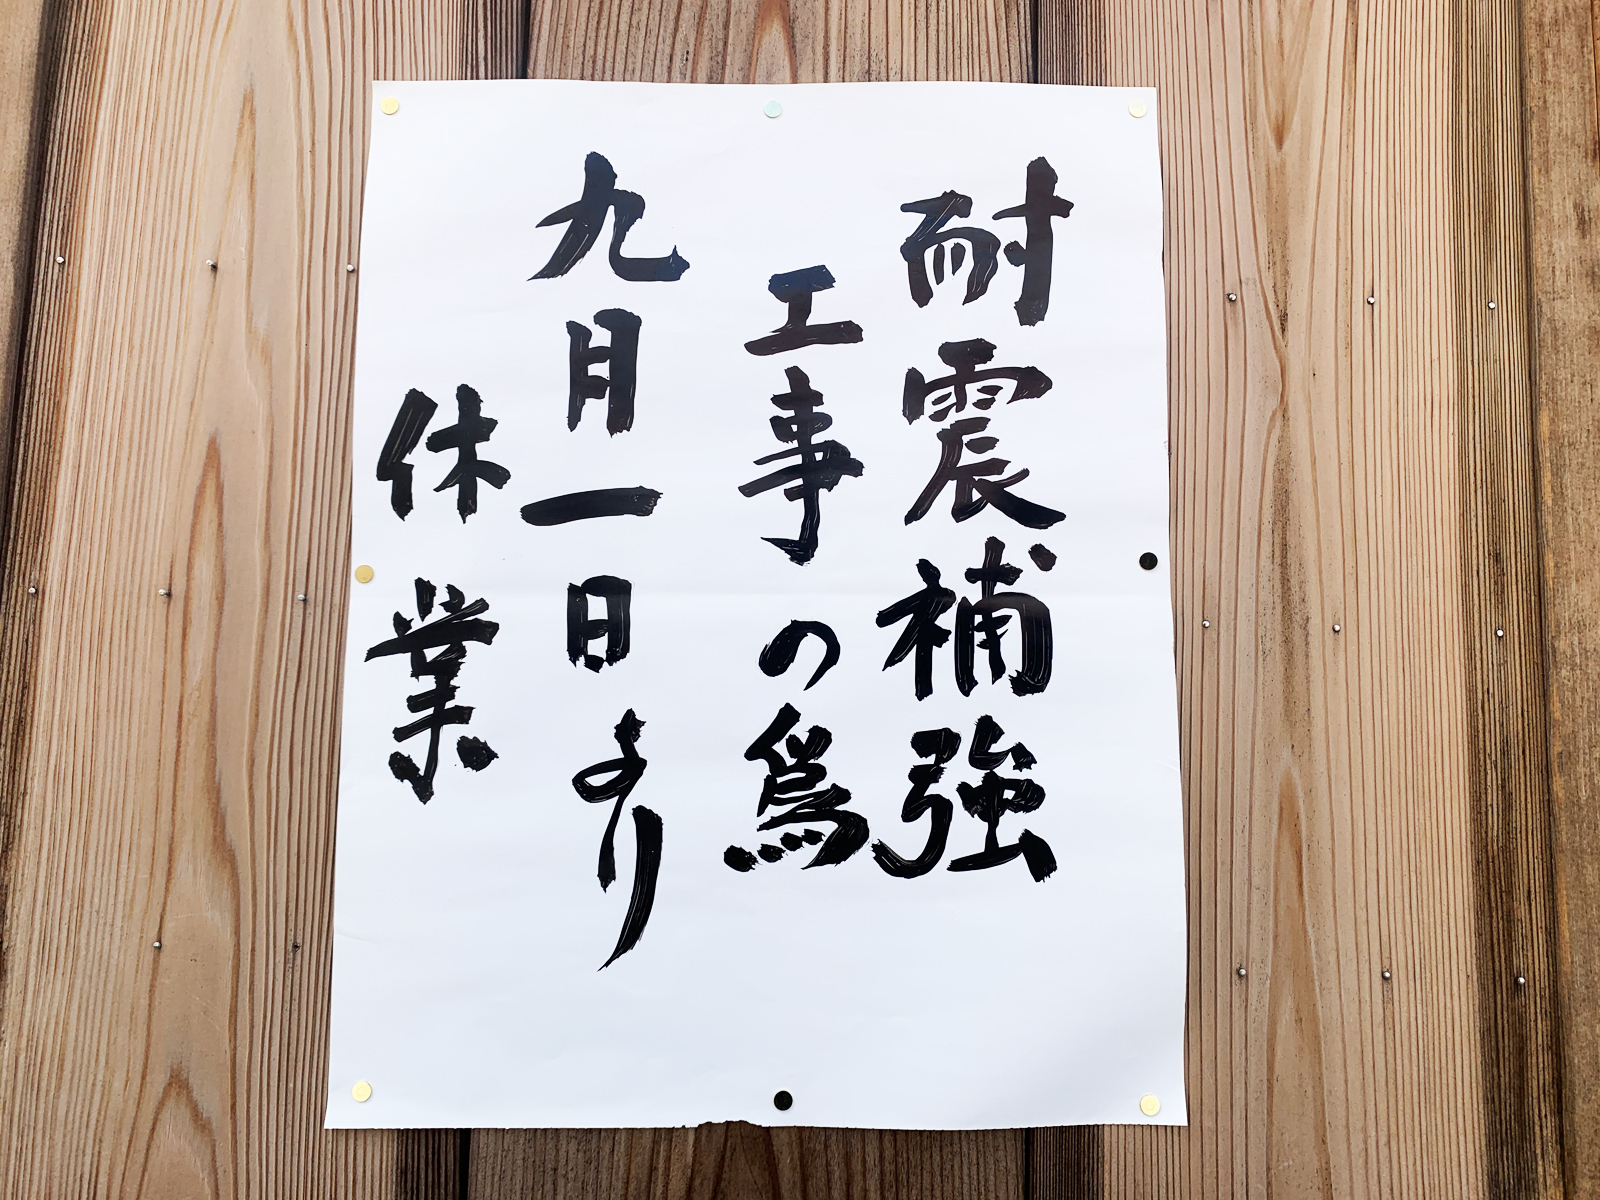 耐震補強
工事の為
九月一日より
休業